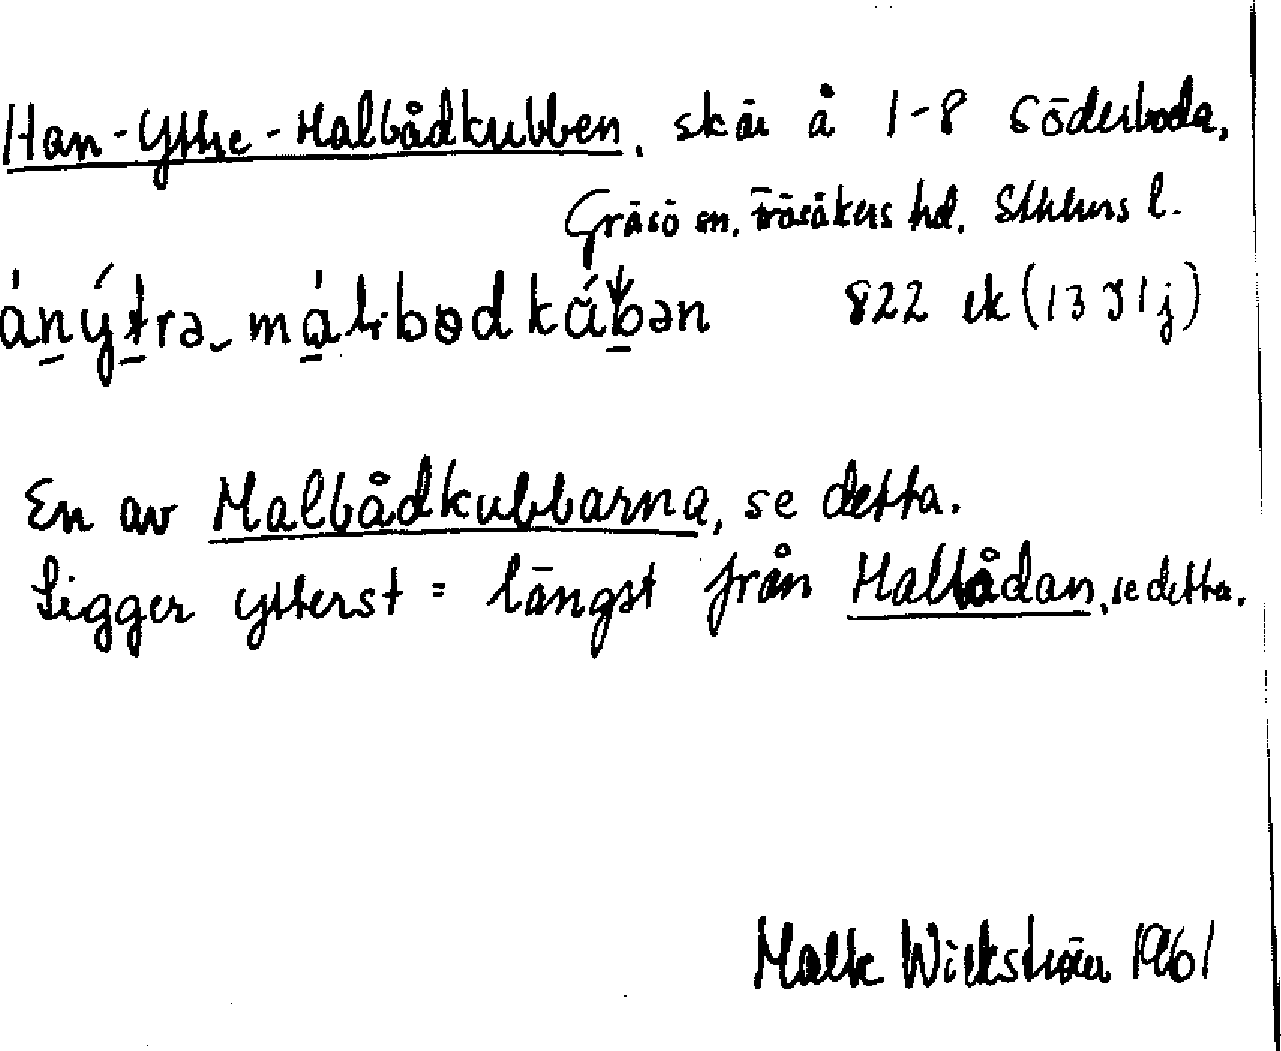 Han-Yttre-Malbådkubben, skär å 1-8 Söderboda,
Gräsö sn. Frösåkers hd. Sthlms l.
822 ek (13 I 1j)
En av Malbådkubbarna, se detta.
Ligger ytterst = längst från Malbådan, se detta.
Wickström 1961